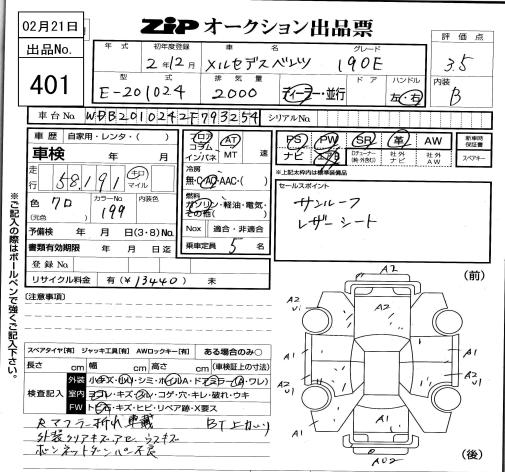 02月21日
出品No.
401
ZIP オークション出品票
評価点
3.5
内装
B
年式 初年度登録 車名 グレード
2年12月 メルセデスベンツ 190E
型式 排気量 ドア ハンドル
E-201024 2000 ディーラー・並行 左・右
車台No. WDB2010242F793254 シリアルNo.
車歴 自家用・レンタ( )
車検 年 月
走行 58,191 キロ マイル
色 クロ カラーNo. 199 内装色
(元色)
予備検 年 月(3・8)No.
書類有効期限 年 月 日迄
登録No.
リサイクル料金 有(¥13440) 未
フロア コラム インパネ AT MT 速
冷房
無・AC・AAC・( )
燃料
ガソリン・軽油・電気・その他( )
Nox 適合・非適合
乗車定員 5 名
PS PW SR 革 AW
ナビ エアB 社外ナビ 社外AW
新車時保証書
スペアキー
※上記太枠内は標準装備品
セールスポイント
サンルーフ
レザーシート
※ご記入の際はボールペンで強くご記入下さい。
[注意事項]
スペアタイヤ[有] ジャッキ工具[有] AWロックキー[有] ある場合のみ○
長さ cm 幅 cm 高さ cm (車検証上の寸法)
検査記入
外装
室内 ヨゴレ・キズ・スレ・コゲ・穴・キレ・破れ・ウキ
FW トビ石・キズ・ヒビ・リペア跡・X要ス
Rマフラー折れ 車載 BT上カリ
ボンネットダンパー不良
(前)
A2
A2
A1
A1
A1
(後)